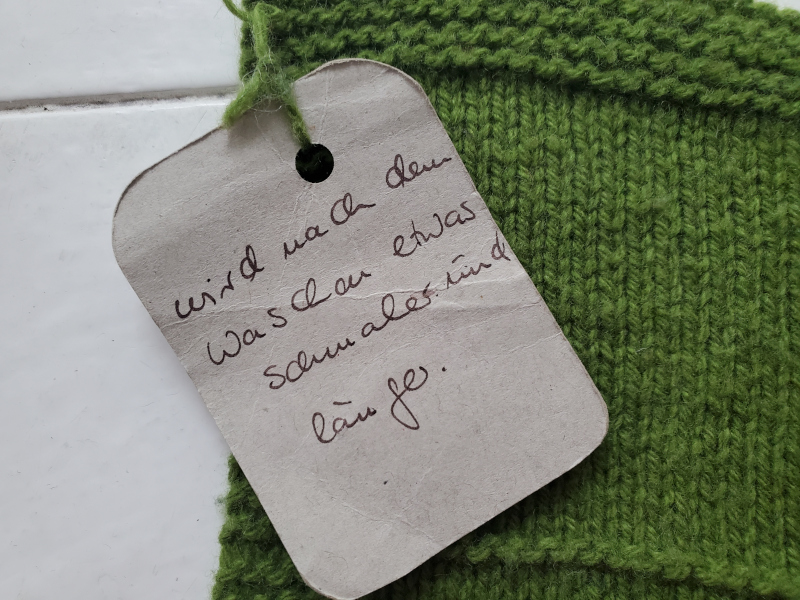 wird nach dem
waschen etwas
schmaler und
länger.